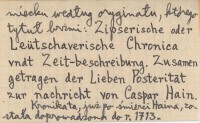 miecku według oryginału, którego
tytuł brzmi: Zipserische oder
Leütschaverische Chronica
vndt Zeit-beschreibung. Zusamen
getragen der Lieben Posterität
zur nachricht von Caspar Hain.
Kronikata, już po śmierci Haina, zo
stała doprowadzona do r. 1713.